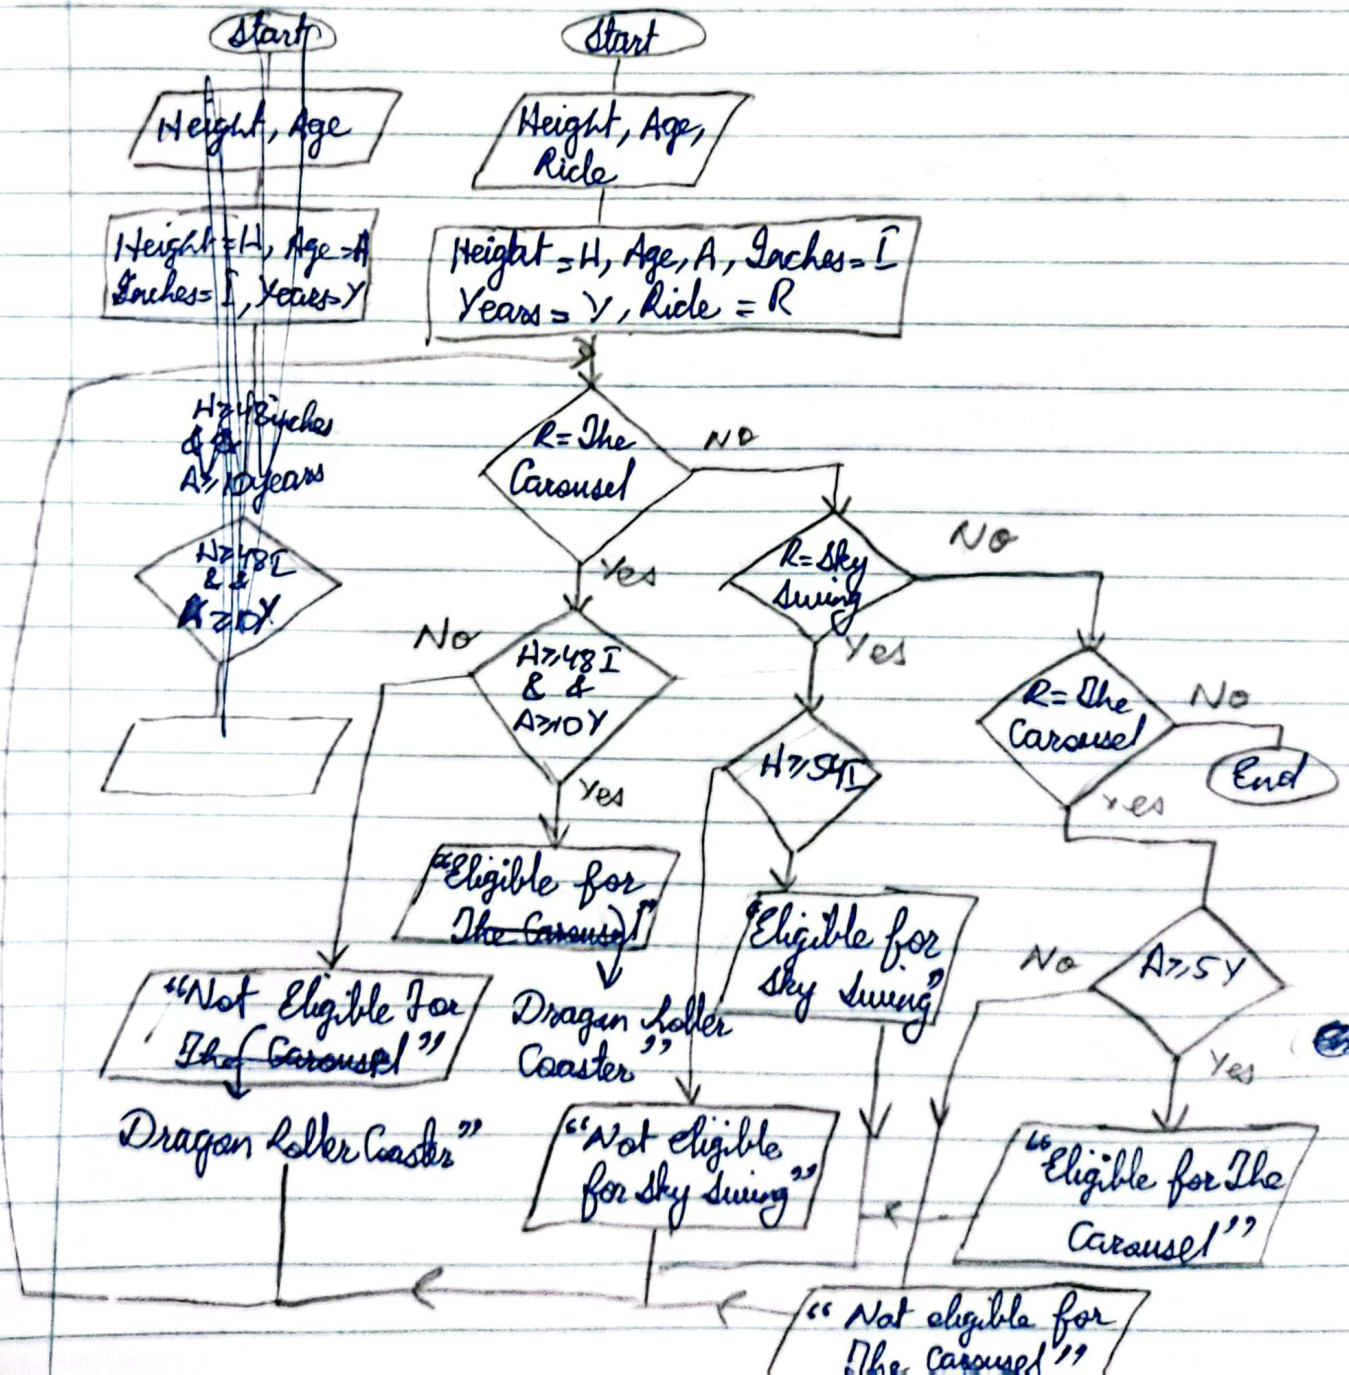 Start
Height, Age
Height = H, Age = A
Inches = I, Years = Y
H ≥ 48 inches
& &
A ≥ 10 years
H ≥ 48 I
& &
A ≥ 10 Y
Start
Height, Age,
Ride
Height = H, Age, A, Inches = I
Years = Y, Ride = R
R = The
Carousel
No
Yes
R = Sky
Swing
No
Yes
R = The
Carousel
No
End
Yes
H ≥ 48 I
& &
A ≥ 10 Y
No
Yes
H ≥ 54 I
A ≥ 5 Y
No
Yes
"Eligible for
The Carousel"
Dragon Roller
Coaster"
"Not Eligible For
The Carousel"
Dragon Roller Coaster"
"Eligible for
Sky Swing"
"Not eligible
for Sky Swing"
"Eligible for The
Carousel"
"Not eligible for
The Carousel"